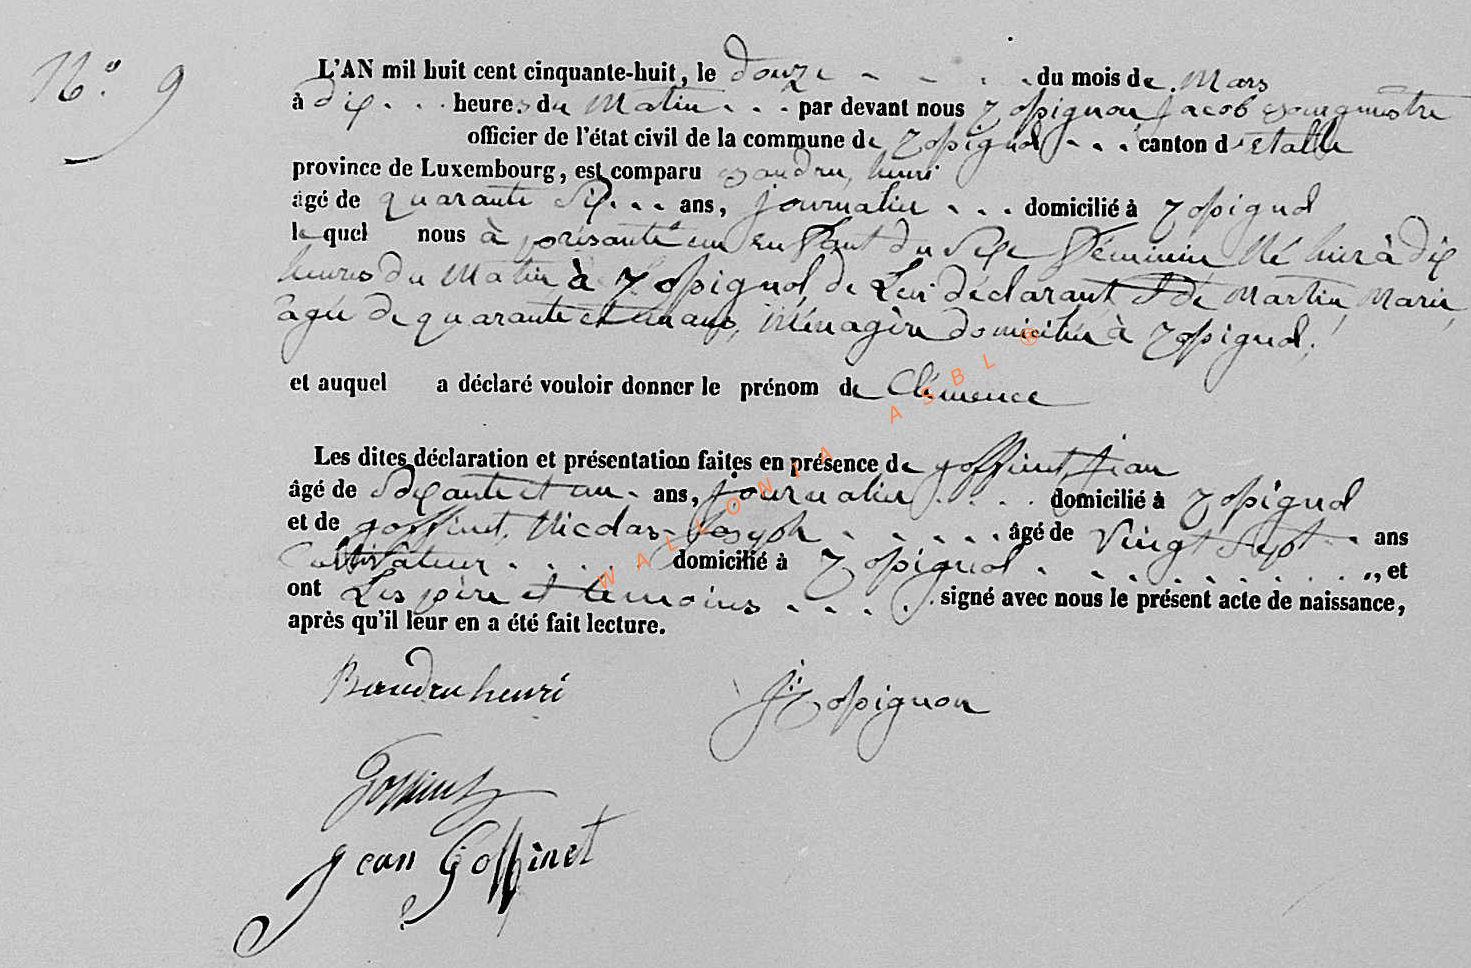 N.o 9
L'AN mil huit cent cinquante-huit, le douze - - - - du mois de Mars
à dix - - - heures du Matin - - - par devant nous Rossignon Jacob Bourgmestre
officier de l'état civil de la commune de Rossignol - - - canton d'Etalle
province de Luxembourg, est comparu Baudru, henri
âgé de quarante Six - - - ans, journalier - - - domicilié à Rossignol
lequel nous à présanté un enfant du Sexe Féminin Né hier à dix
heures du Matin à Rossignol, de Lui déclarant, et de Martin, Marie,
âgée de quarante et un ans, Ménagère domiciliée à Rossignol,
et auquel a déclaré vouloir donner le prénom de Clémence
Les dites déclaration et présentation faites en présence de goffinet, jean
âgé de Soixante et un - ans, journalier - - - - domicilié à Rossignol
et de goffinet, Nicolas-Joseph - - - - - âgé de Vingt Sept - - ans
Cultivateur - - - - domicilié à Rossignol - - - - - - - - - - „, et
ont Les père et temoins - - - - signé avec nous le présent acte de naissance,
après qu'il leur en a été fait lecture.
Baudru henri J Rossignon
Goffinet
Jean Goffinet
WALLONIA ASBL ®